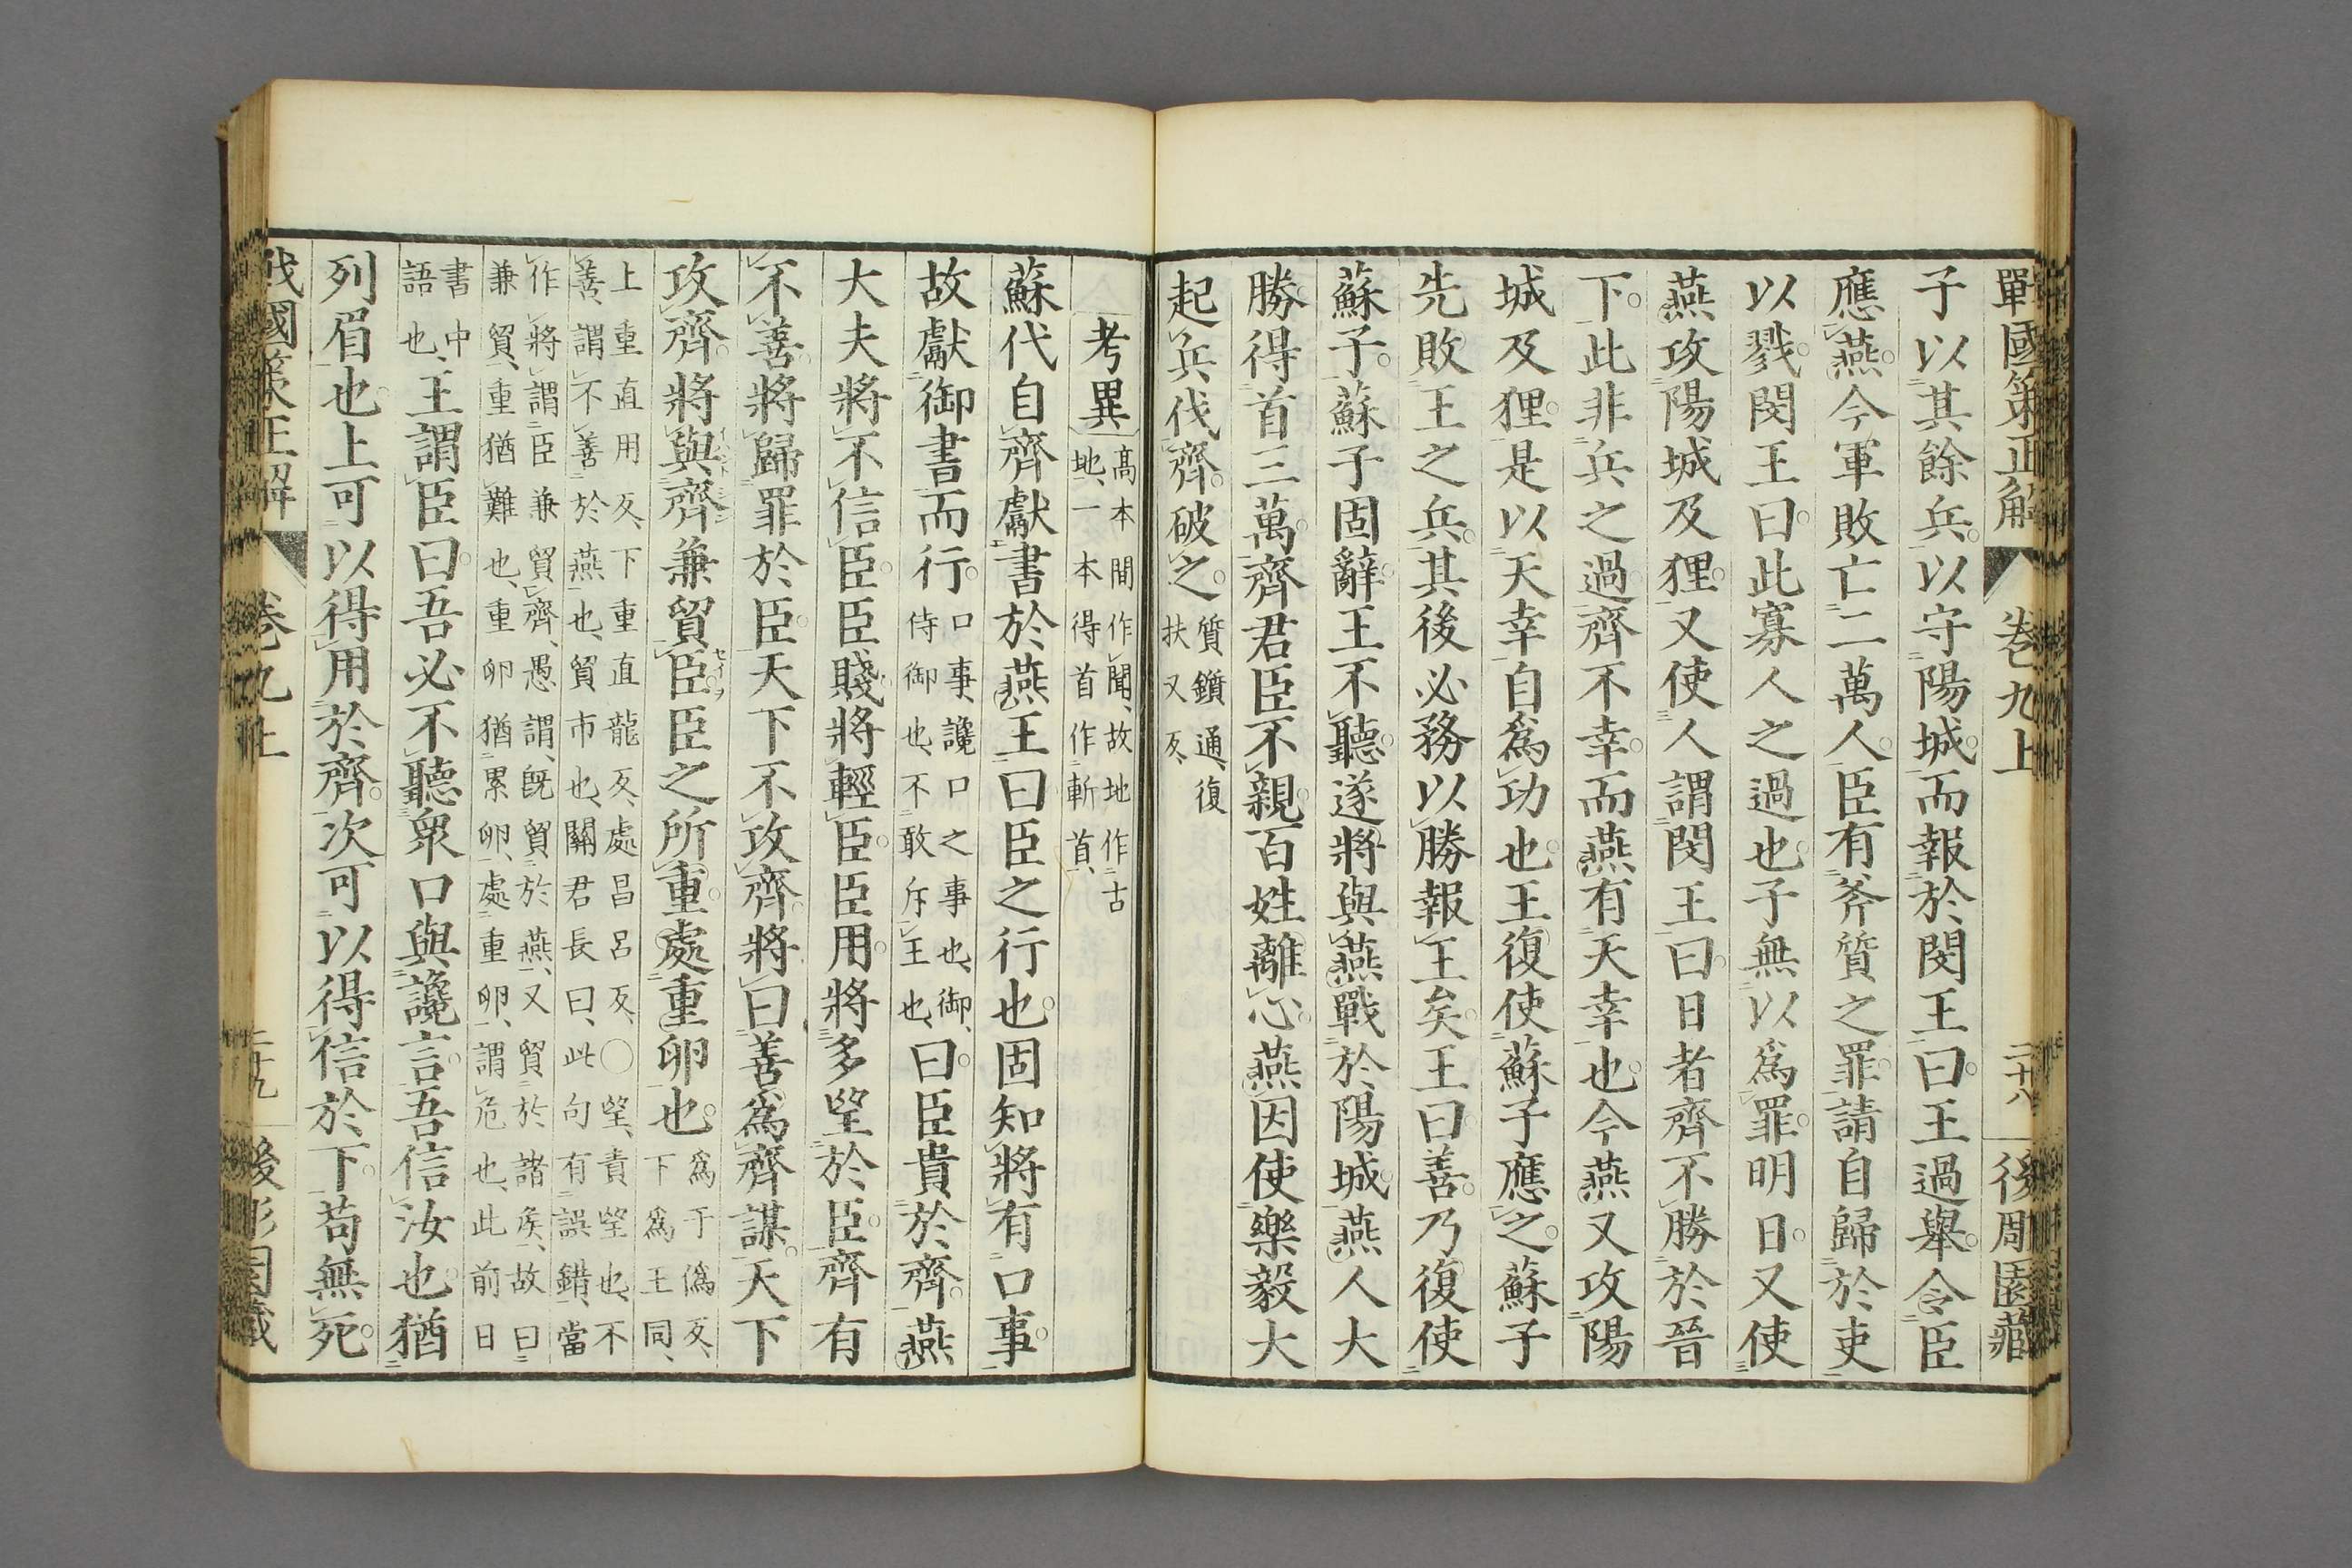 戰國策正解 卷九上 二十八 後周園藏
子以其餘兵以守陽城而報於閔王曰王過舉令臣
應燕今軍敗亡二萬人臣有斧質之罪請自歸於吏
以戮閔王曰此寡人之過也子無以爲罪明日又使
燕攻陽城及狸又使人謂閔王曰日者齊不勝於晉
下此非兵之過齊不幸而燕有天幸也今燕又攻陽
城及狸是以天幸自爲功也王復使蘇子應之蘇子
先敗王之兵其後必務以勝報王矣王曰善乃復使
蘇子蘇子固辭王不聽遂將與燕戰於陽城燕人大
勝得首三萬齊君臣不親百姓離心燕因使樂毅大
起兵伐齊破之質鑕通、復
扶又反、
考異高本間作聞、故地作古
地、一本得首作斬首、
蘇代自齊獻書於燕王曰臣之行也固知將有口事
故獻御書而行口事、讒口之事也、御、
侍御也、不敢斥王也、曰臣貴於齊燕
大夫將不信臣臣賤將輕臣臣用將多望於臣齊有
不善將歸罪於臣天下不攻齊將曰善爲齊謀天下
攻齊將與齊兼貿臣臣之所重處重卵也爲于僞反、
下爲王同、
上重直用反、下重直龍反、處昌呂反、○望、責望也、不
善、謂不善於燕也、貿市也、關君長曰、此句有誤錯、當
作將謂臣兼貿齊、愚謂、既貿於燕、又貿於諸矦、故曰
兼貿、重猶難也、重卵猶累卵、處重卵、謂危也、此前日
書中
語也、王謂臣曰吾必不聽衆口與讒言吾信汝也猶
列眉也上可以得用於齊次可以得信於下苟無死
戰國策正解 卷九上 二十九